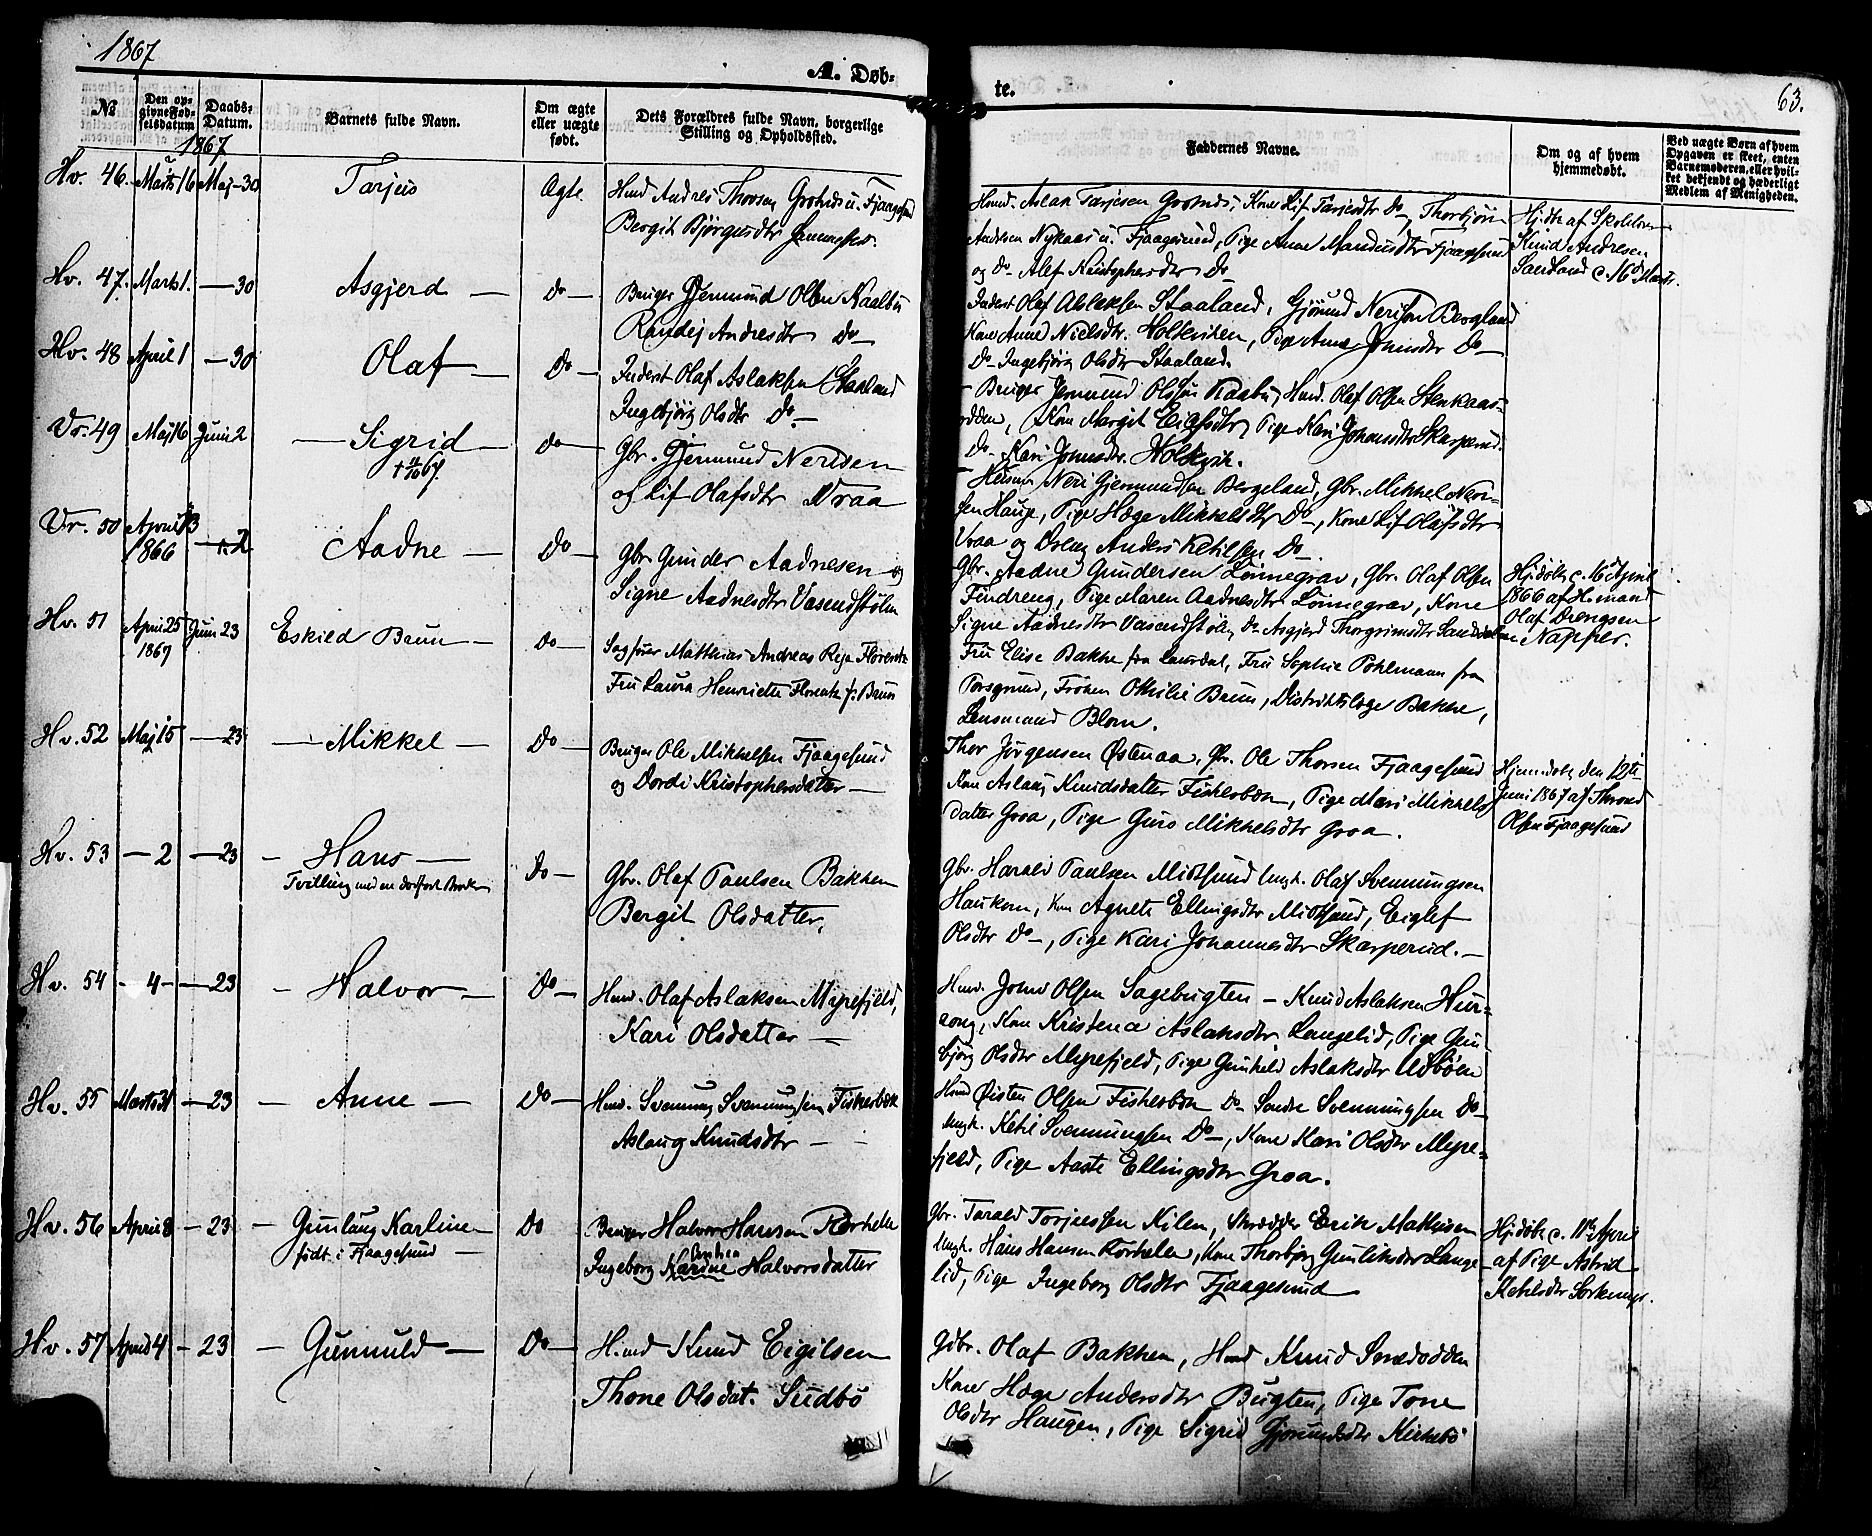 1867
A. Døb-
te.
63.
№
Den op-
givne Fød-
selsdatum
Daabs-
Datum.
1867
Barnets fulde Navn.
Om ægte
eller uægte
født.
Dets Forældres fulde Navn, borgerlige
Stilling og Opholdssted.
Faddernes Navne.
Om og af hvem
hjemmedøbt.
Ved uægte Børn af hvem
Opgaven er skeet, enten
Barnemoderen, eller hvil-
ket bekjendt og hæderligt
Medlem af Menigheden.
Hv. 46. Marts 16 Maj 30 Tarjeis Ægte
Husmd Andres Thovsen Grotnes u. Fjaagesund
Bergit Bjørgusdtr
Husmd. Aslak Tarjesen Grotnes, Kone Lif Tarjesdtr do, Thorbjørn
Andersen Nykaas u. Fjaagesund, Pige Anne Fjaagesund
og do Alef Kristophersdtr do
Hjdbt af Skolelærer
Knud Andresen
Sandland c. 16de Marts.
Hv. 47. Marts 1. — 30 Asgjerd — do —
Bruger Gjermund Olsen Naalbu
Randei Andresdtr do —
Inderst Olaf Aslaksen Staaland, Gjermund Nerisen Bergland
Kone Anne Nielsdtr. Holtvigen, Pige Anne Johnsdtr do —
do Ingebjørg Olsdtr Staaland.
Hv. 48 April 1 — 30 Olaf — do —
Inderst Olaf Aslaksen Staaland
Ingebjørg Olsdtr do —
Bruger Jermund Olsen Naalbu, Husmd. Olaf Olsen Stenkaas-
odden, Kone Margit Eigilsdtr, Pige Kari Johansdtr Skarperud.
do Kari Johnsdtr. Holtvik.
Vr. 49 Maj 16 Juni 2 — Sigrid — do —
† 67.
Gbr. Gjermund Nerisen
og Lif Olafsdtr Vraa
Husmd Neri Gjermundsen Bergeland, Gbr. Mikkel Neri-
sen Hauge, Pige Hæge Mikkelsdtr do —, Kone Lif Olafsdtr
Vraa og Dreng Anders Ketilsen do
Vr. 50 April 13 1866 — 2 Aadne — do —
Gbr. Gunder Aadnesen og
Signe Aadnesdtr Vasendstølen
Gbr. Aadne Gundersen Lønnegrav, Gbr. Olaf Olsen
Findreng, Pige Maren Aadnesdtr Lønnegrav, Kone
Signe Aadnesdtr Vasendstølen, do Asgjerd Thorgrimsdtr
Hjdøbt c. 16de April
1866 af Husmand
Olaf Drengsen
Napper.
Hv. 51 April 25 1867 Juni 23 Eskild Bruun — do —
Sagfører Matthias Andreas Florentz
Fru Laura Henriette Florentz f. Bruun
Fru Elise Bakke fra Laurdal, Fru Sophie Pohlmann fra
Porsgrund, Frøken Othilie Bruun, Distriktslæge Bakke,
Lensmand Blom.
Hv. 52 Maj 15 — 23 — Mikkel — do —
Bruger Ole Mikkelsen Fjaagesund
og Dordi Kristophersdatter —
Thor Jørgensen Østenaa, Gbr. Ole Thorsen Fjaagesund
Kone Aslaug Knudsdatter Fiskerbæk, Pige Mari Mikkels-
datter Groa, Pige Guro Mikkelsdtr Groa.
Hjemdøbt den 12te
Juni 1867 af Thrond
Olsen Fjaagesund
Hv. 53 — 2 — 23 — Hans — do —
Tvilling med en dødfødt Broder
Gbr. Olaf Paulsen Bakken
Bergit Olsdatter.
Gbr. Harald Paulsen Midtsund Ungk. Olaf Svenningsen
Haukom, Kone Agnete Ellingsdtr Midtsund, Eiglef
Olsdtr do —, Pige Kari Johannesdtr Skarperud. —
Hv. 54 — 4 — — 23 — Halvor — do —
Husmd. Olaf Aslaksen Myrefjeld,
Kari Olsdatter —
Husmd. John Olsen Sagebugten — Knud Aslaksen Hur-
rong, Kone Kristence Aslaksdtr Langelid, Pige Gun-
bjørg Olsdtr Myrefjeld, Pige Gunhild Aslaksdtr Udbøen
Hv. 55 Marts 31 — 23 — Anne — do —
Husmd. Svenung Svenungsen Fiskerbæk
Aslaug Knudsdtr —
Husmd Øisten Olsen Fiskerbæk do Sondre Svenningsen do
Ungk. Ketil Svenningsen do —, Kone Kari Olsdtr Myre-
fjeld, Pige Aaste Ellingsdtr Groa.
Hv. 56 April 8 — 23 — Gunlaug Karline do
født i Fjaagesund —
Bruger Halvor Hansen Rorhelle
Ingeborg Karine Halvorsdatter
Gbr. Tarald Torjussen Kilen, Skrædder Erik Mathisen
Ungk. Hans Hansen Rorhelle, Kone Thorbjørg Gunleiksdtr Lange-
lid, Pige Ingeborg Olsdtr Fjaagesund —
Hjdøbt c. 11te April
af Pige Astrid
Ketilsdtr
Hv. 57 April 4 — 23 — Gunnuld — do —
Husmd Knud Eigilsen
Thone Olsdat. Sudbø
Gdbr. Olaf Bakken, Husmd Knud
Kone Hæge Andersdtr Bugten, Pige Tone
Olsdtr Haugen, Pige Sigrid Gjermundsdtr Kirkebø